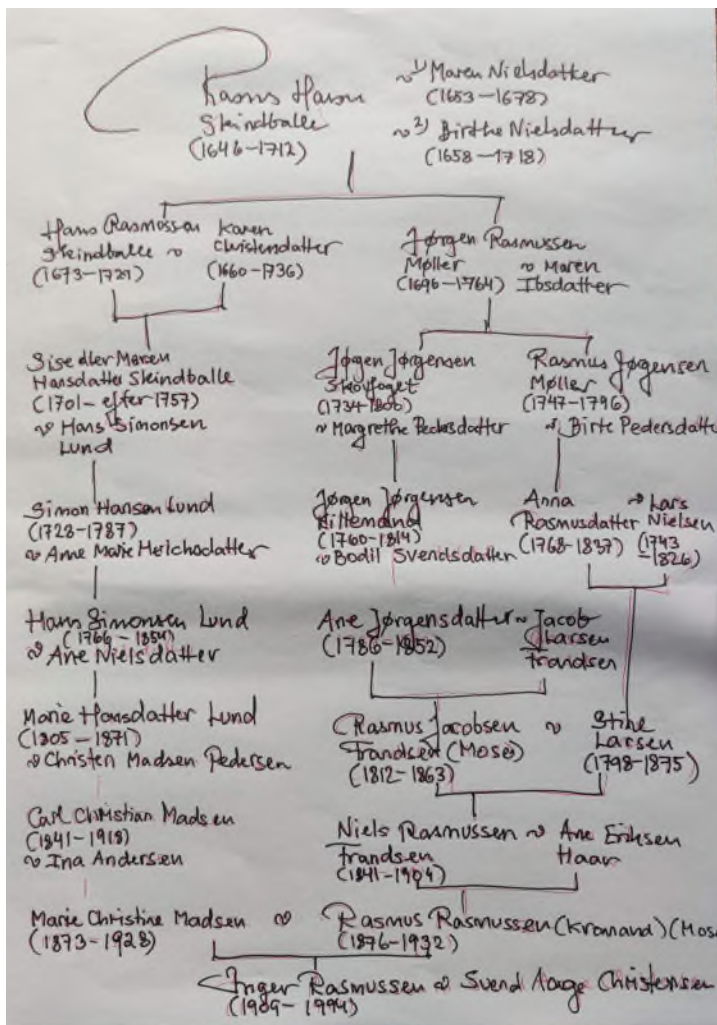 Rasmus Hansen
Skindballe
(1646-1712)
~ 1) Maren Nielsdatter
(1653-1678)
~ 2) Birthe Nielsdatter
(1658-1718)
Hans Rasmussen
Skindballe ~
(1673-1729)
Karen
Christensdatter
(1660-1736)
Jørgen Rasmussen
Møller
(1696-1764)
~ Maren
Ibsdatter
Maren
Hansdatter Skindballe
(1701- efter 1757)
~ Hans Simonsen
Lund
Jørgen Jørgensen
Skovfoget
(1734-1806)
~ Margrethe Pedersdatter
Rasmus Jørgensen
Møller
(1747-1796)
~ Birte Pedersdatte
Simon Hansen Lund
(1728-1787)
~ Anne Marie
Jørgen Jørgensen
(1760-1814)
~ Bodil Svendsdatter
Anna
Rasmusdatter
(1768-1837)
~ Lars
Nielsen
(1743
-1826)
Hans Simonsen Lund
(1766-1854)
~ Ane Nielsdatter
Ane Jørgensdatter ~
(1786-1852)
Jacob
Larsen
Frandsen
Marie Hansdatter Lund
(1805-1871)
~ Christen Madsen Pedersen
Rasmus Jacobsen ~
Frandsen (Mose)
(1812-1863)
Stine
Larsen
(1798-1875)
Carl Christian Madsen
(1841-1918)
~ Ina Andersen
Niels Rasmussen ~
Frandsen
(1841-1904)
Ane Eriksen
Haar
Marie Christine Madsen ~
(1873-1928)
Rasmus Rasmussen (Kromand) (Mos
(1876-1932)
Inger Rasmussen ~ Svend Aage Christensen
(1909-1994)